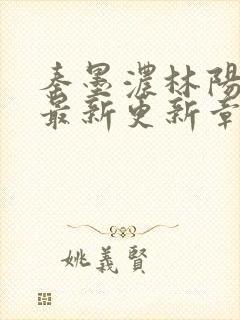 秦墨濃林陽
最新更新章
姚義賢